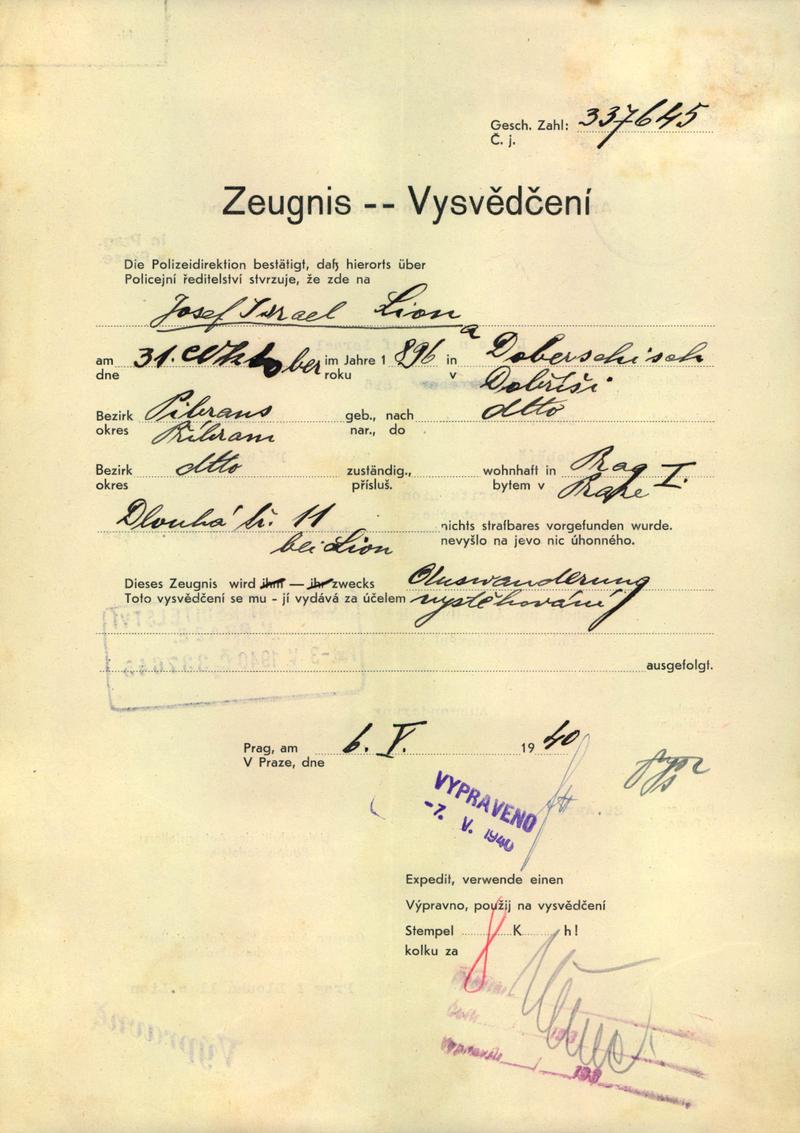 Gesch. Zahl: 337645
Č. j.
Zeugnis -- Vysvědčení
Die Polizeidirektion bestätigt, daß hierorts über
Policejní ředitelství stvrzuje, že zde na
Josef Israel Liona
am 31. Oktober im Jahre 1896 in Doberschisch
dne roku v Dobříši
Bezirk Pibrans geb., nach dtto
okres Příbram nar., do
Bezirk dtto zuständig., wohnhaft in Prag I.
okres přísluš. bytem v Praze
Dlouhá tř. 11 nichts strafbares vorgefunden wurde.
bei Lion nevyšlo na jevo nic úhonného.
Dieses Zeugnis wird ihm — ihr zwecks Auswanderung
Toto vysvědčení se mu - jí vydává za účelem vystěhování
ausgefolgt.
Prag, am 6. V. 1940
V Praze, dne
VYPRAVENO
-7. V. 1940
Expedit, verwende einen
Výpravno, použij na vysvědčení
Stempel 8 K h!
kolku za